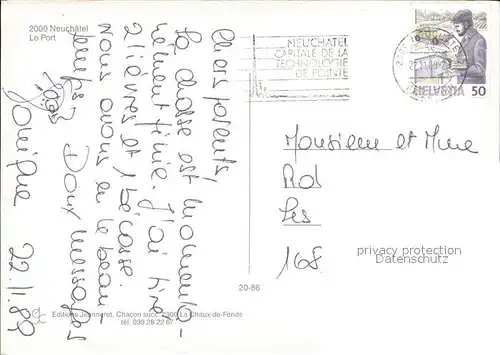 2000 Neuchâtel
Le Port
Chers parents,
La chasse est momenta-
nément finie. J'ai tiré
2 lièvres et 1 bécasse.
Nous avons eu le beau
temps. Doux messages
22.11.89
NEUCHATEL
CAPITALE DE LA
TECHNOLOGIE
DE POINTE
HELVETIA 50
Monsieur et Mme
Rod
Les
168
privacy protection
Datenschutz
20-86
Editions Jeanneret, Chacon succ. 2300 La Chaux-de-Fonds
tél. 039 28 22 67